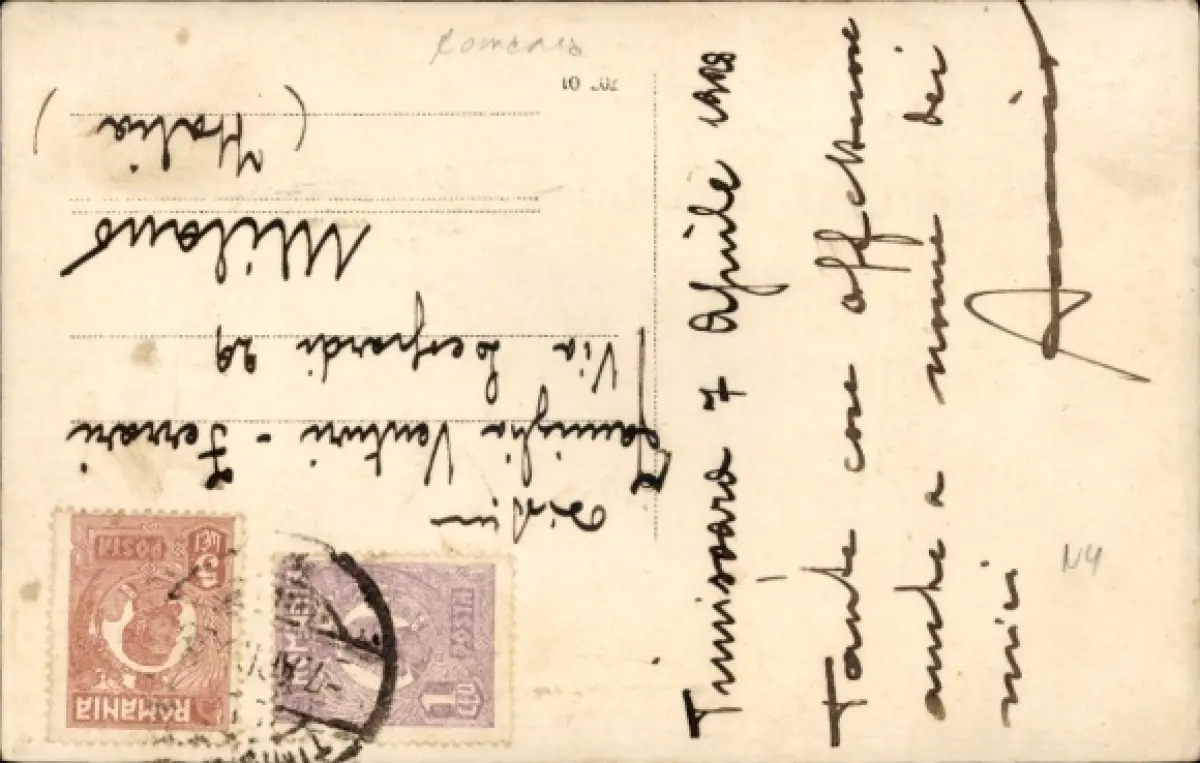 Romania
Timisoara 7 Aprile 1928
Tante cose affettuose
anche a nome dei
miei
Famiglia Venturi - Ferrari
Via Leopardi 29
Milano
(Italia)
POSTA
LEI
ROMANIA
ROMANIA
POSTA
1
LEU
N4